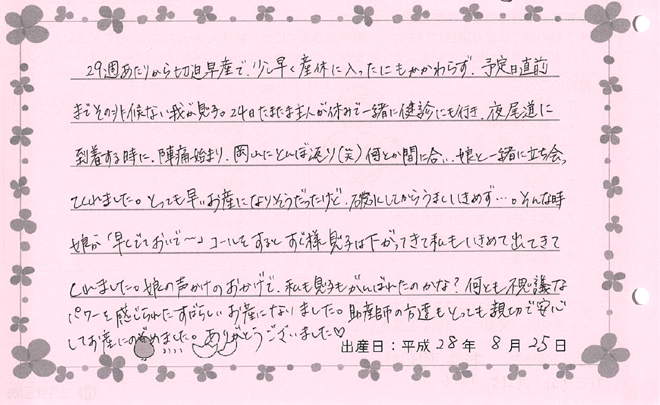 29週あたりから切迫早産で、少し早く産休に入ったにもかかわらず、予定日直前
までその兆候ない我が息子。24日たまたま主人が休みで一緒に健診にも行き、夜尾道に
到着する時に、陣痛始まり、岡山にとんぼ返り(笑)何とか間に合い、娘と一緒に立ち会っ
てくれました。とっても早いお産になりそうだったけど、破水してからうまくいきめず…。そんな時
娘が「早くでておいで〜」コールをするとすぐ様息子は下がってきて私もいきめて出てきて
くれました。娘の声かけのおかげで、私も息子もがんばれたのかな？何とも不思議な
パワーを感じられたすばらしいお産になりました。助産師の方達もとっても親切で安心
してお産にのぞめました。ありがとうございました♡
出産日：平成 28年 8月 25日